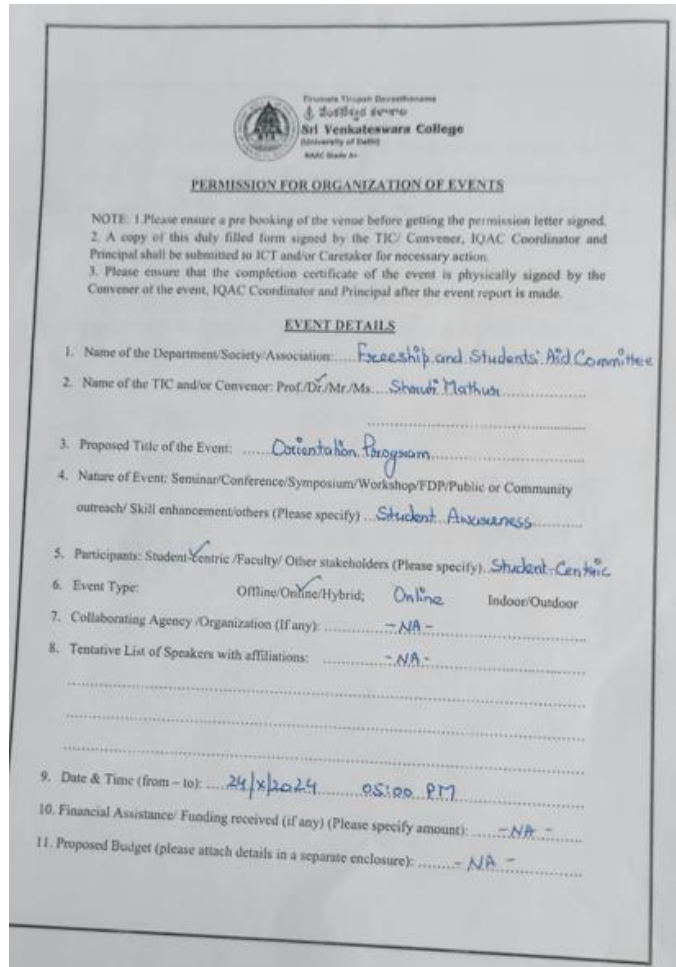 Tirumala Tirupati Devasthanams
శ్రీ వేంకటేశ్వర కళాశాల
Sri Venkateswara College
(University of Delhi)
NAAC Grade A+
PERMISSION FOR ORGANIZATION OF EVENTS
NOTE: 1.Please ensure a pre booking of the venue before getting the permission letter signed.
2. A copy of this duly filled form signed by the TIC/ Convener, IQAC Coordinator and
Principal shall be submitted to ICT and/or Caretaker for necessary action.
3. Please ensure that the completion certificate of the event is physically signed by the
Convener of the event, IQAC Coordinator and Principal after the event report is made.
EVENT DETAILS
1. Name of the Department/Society/Association: Freeship and Students' Aid Committee
2. Name of the TIC and/or Convenor: Prof./Dr./Mr./Ms. Shruti Mathur
3. Proposed Title of the Event: Orientation Program
4. Nature of Event: Seminar/Conference/Symposium/Workshop/FDP/Public or Community
outreach/ Skill enhancement/others (Please specify) Student Awareness
5. Participants: Student-centric /Faculty/ Other stakeholders (Please specify) Student-Centric
6. Event Type: Offline/Online/Hybrid; Online Indoor/Outdoor
7. Collaborating Agency /Organization (If any): -NA-
8. Tentative List of Speakers with affiliations: -NA-
9. Date & Time (from – to): 24/X/2024 05:00 PM
10. Financial Assistance/ Funding received (if any) (Please specify amount): -NA-
11. Proposed Budget (please attach details in a separate enclosure): -NA-